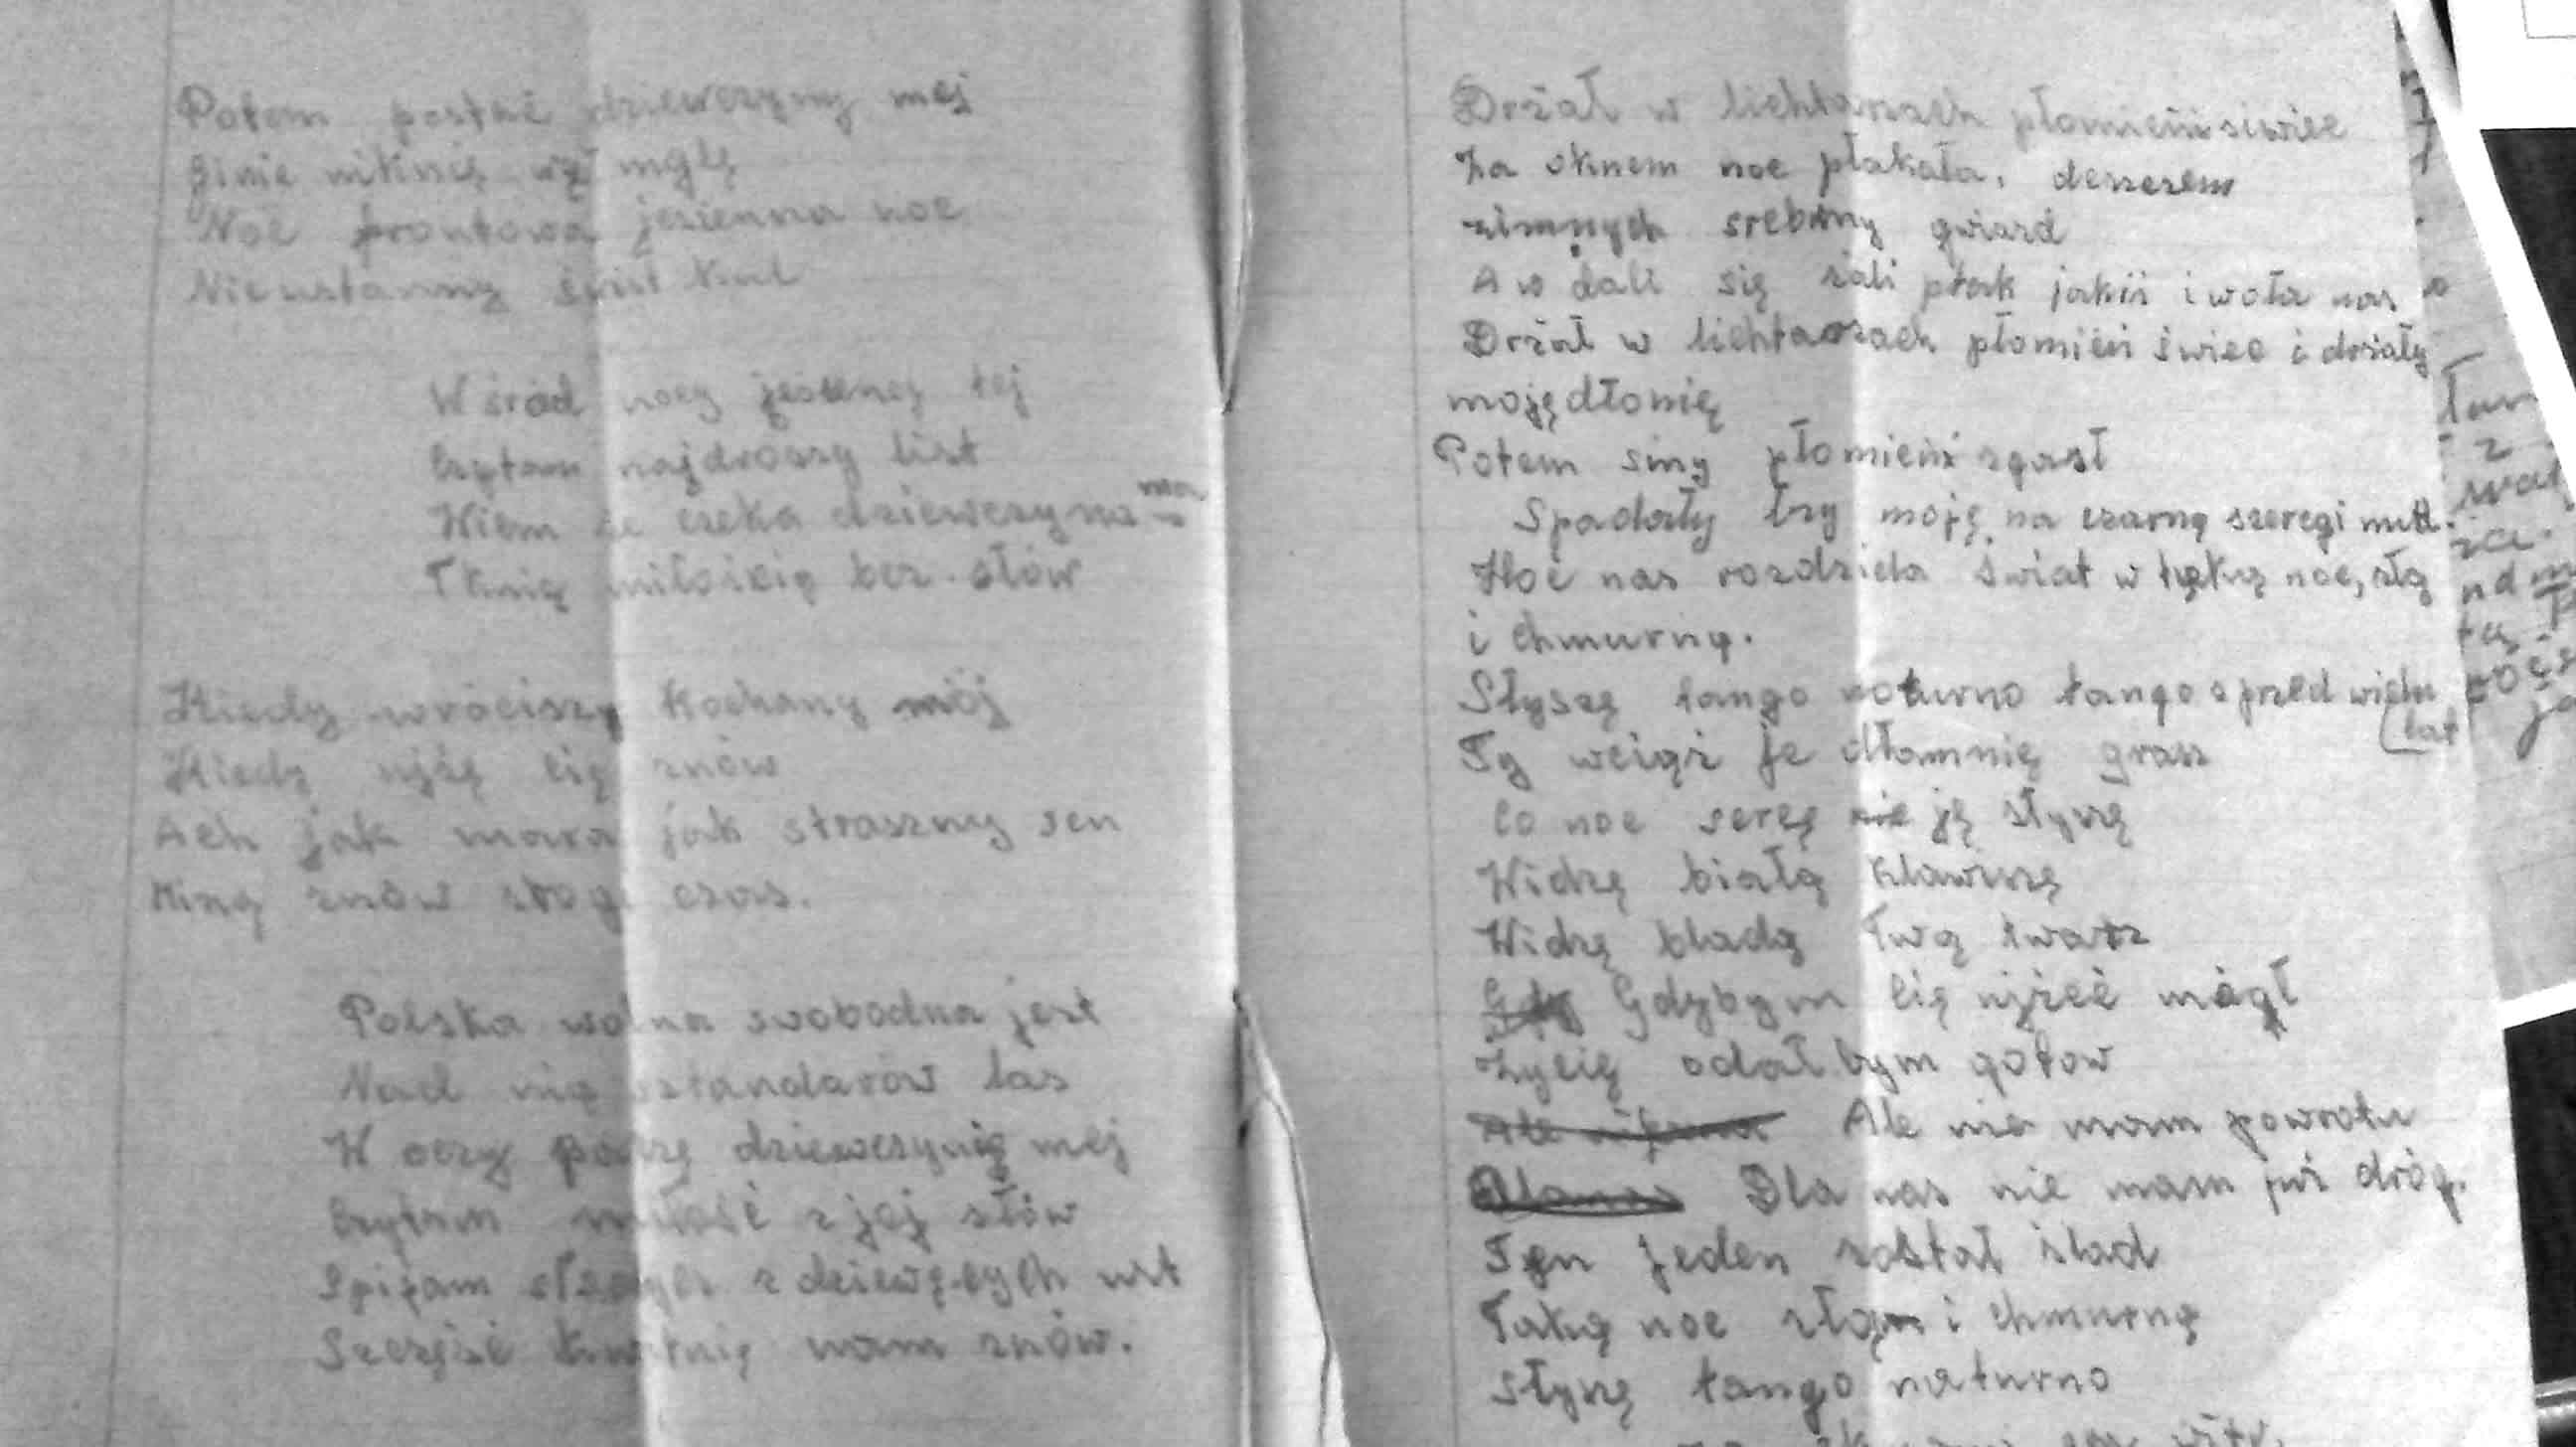 Potem postać dziewczyny mej
Ginie niknię wę mglę
Noc frontowa jesienna noc
Nieustanny świst kul
Wśród nocy jesiennej tej
Czytam najdroszy list
Wiem że czeka dziewczyna ma
Tknię miłoścją bez słów
Kiedy wrócisz Kochany mój
Kiedy ujżę cię znów
Ach jak mara jak straszny sen
Miną znów srogi czas.
Polska wolna swobodna jest
Nad nią sztandarów las
W oczy patrzę dziewczynię mej
Czytam miłość z jej słów
Spijam z dziewęcych ust
Szczęść kwitnię nam znów.
Drżał w lichtarzach płomień swiec
Za oknem noc płakała, deszczem
zimnych srebrny gwiazd
A w dali się żali ptak jakiś i woła nas
Drżał w lichtarzach płomień świec i drżały
moję dłonię
Potem siny płomień zgasł
Spadały łzy moję na czarnę szeregi nut.
Noc nas rozdziela świat w tęką noc, złą
i chmurną.
Słyszę tango noturno tango sprzed wielu
lat
Ty wciąż je dłamnię grasz
Co noc sercę nie ję słyszę
Widzę białę klawiszę
Widzę bladą Twą twarz
Gdy Gdybym cię ujżeć mógł
Życię odał bym gotow
Ale nie mam powrotu
Dla nas Dla nas nie mam już dróg.
Ten jeden został ślad
Taką noc złą i chmurną
słyszę tango noturno